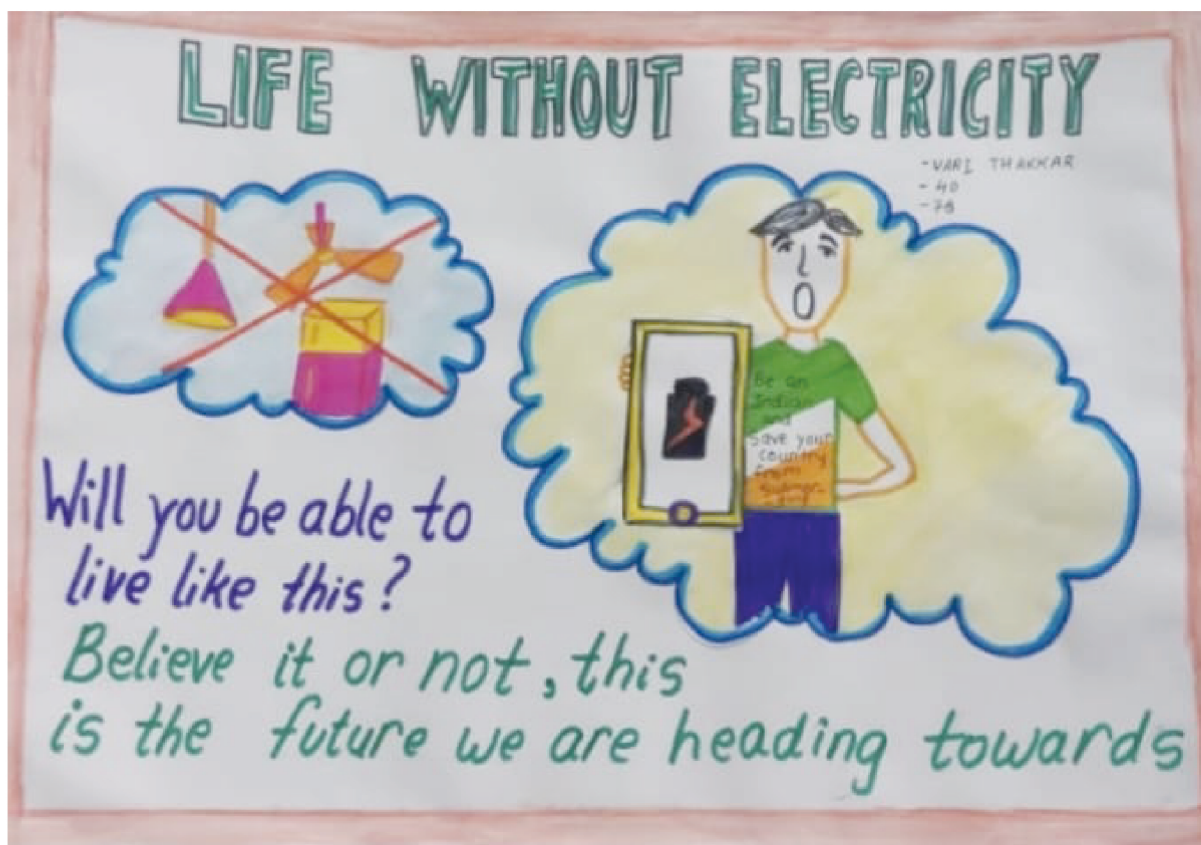 LIFE WITHOUT ELECTRICITY
- VARI THAKKAR
- 40
- 78
Be an
Indian
and
save your
country
from
Will you be able to
live like this?
Believe it or not, this
is the future we are heading towards